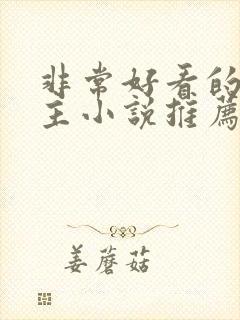 非常好看的
主小說推薦
姜蘑菇